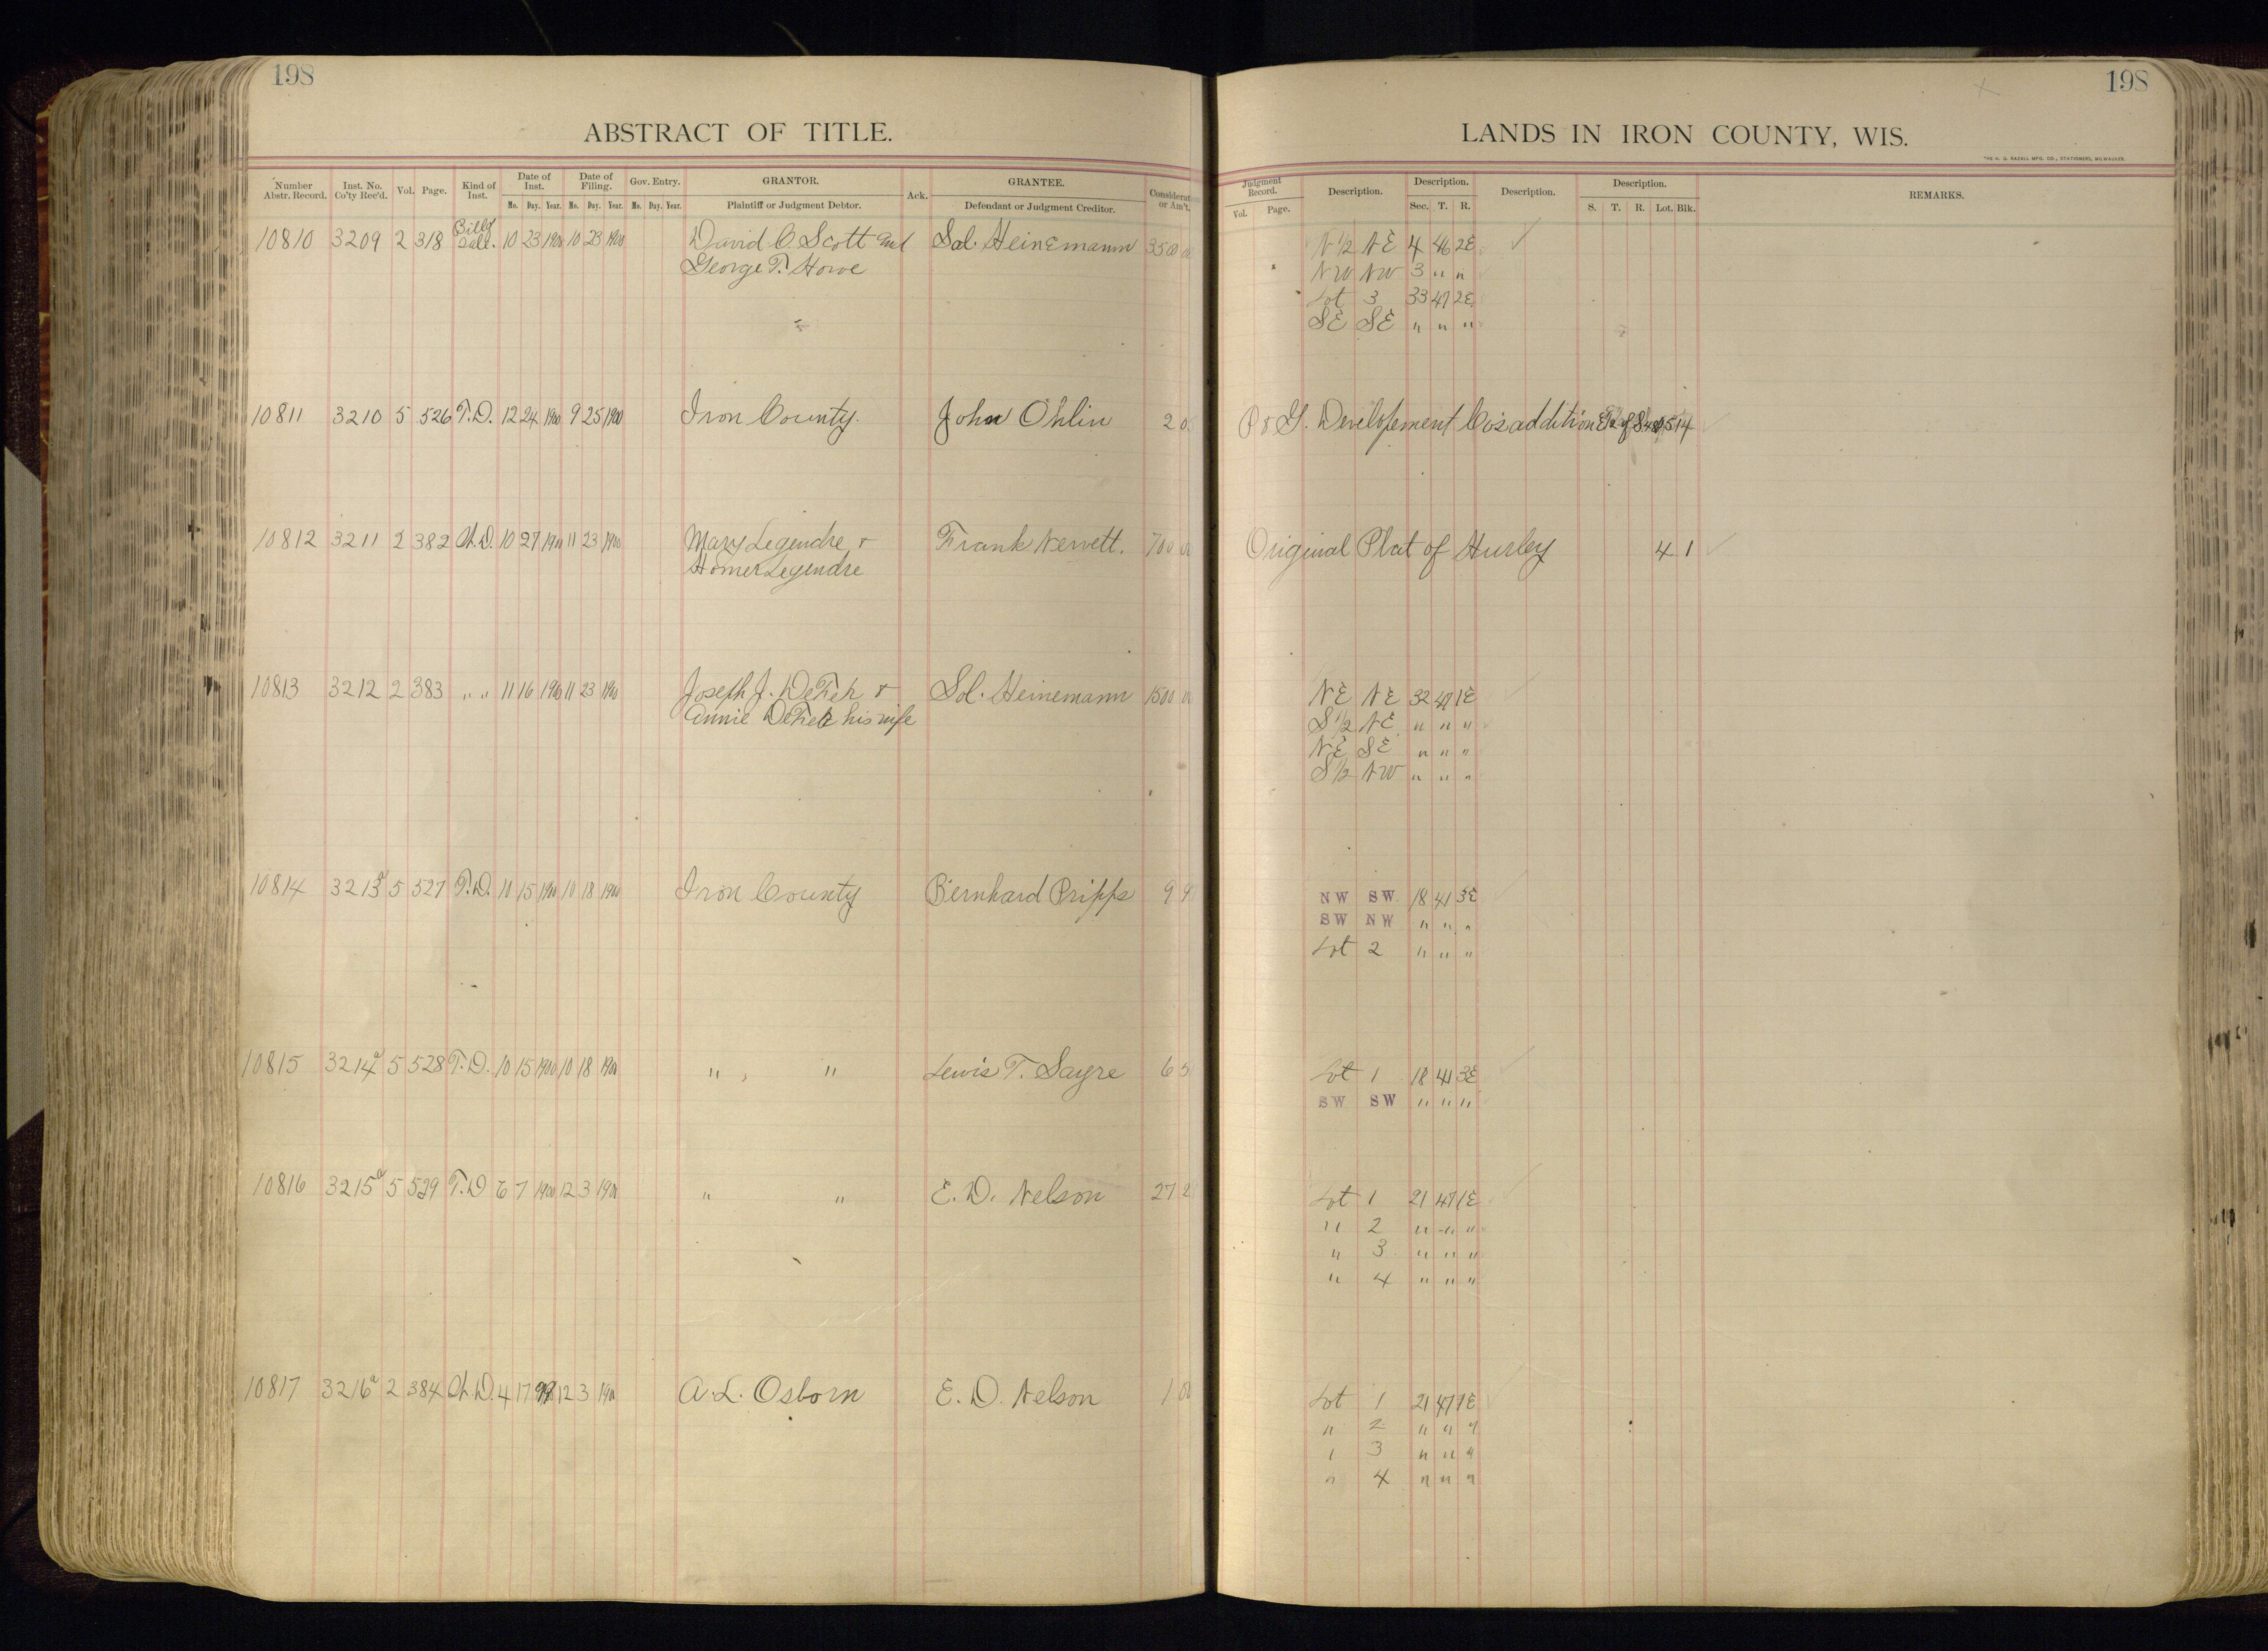 198
ABSTRACT OF TITLE.
Number Abstr. Record. Inst. No. Co'ty Rec'd. Vol. Page. Kind of Inst. Date of Inst. Date of Filing. Gov. Entry. GRANTOR. Ack. GRANTEE. Considerat or Am't.
Mo. Day. Year. Mo. Day. Year. Mo. Day. Year. Plaintiff or Judgment Debtor. Defendant or Judgment Creditor.
10810 3209 2 318 Bill of Sale. 10 23 1900 10 23 1900 David C Scott and Sol. Heinemann 3500 00
George T. Howe
10811 3210 5 526 T.D. 12 24 1900 9 25 1900 Iron County. John Ohlin 2 0
10812 3211 2 382 W.D. 10 27 1900 11 23 1900 Mary Legendre & Frank Nevvett. 700 00
Homer Legendre
10813 3212 2 383 " " 11 16 1900 11 23 1900 Joseph J. & Sol. Heinemann 1500 00
Annie his wife
10814 3213a 5 527 T.D. 10 15 1900 10 18 1900 Iron County Bernhard Pripps 9 9
10815 3214a 5 528 T.D. 10 15 1900 10 18 1900 " " Lewis T. Sayre 6 5
10816 3215a 5 529 T.D 6 7 1900 12 3 1900 " " E. D. Nelson 27 2
10817 3216a 2 384 W.D. 4 17 99 12 3 1900 A. L. Osborn E. D. Nelson 1 00
198
LANDS IN IRON COUNTY, WIS.
THE H. G. RAZALL MFG. CO., STATIONERS, MILWAUKEE.
Judgment Record. Description. Description. Description. Description. REMARKS.
Vol. Page. Sec. T. R. S. T. R. Lot. Blk.
N 1/2 NE 4 46 2E
NW NW 3 " "
Lot 3 33 47 2E
SE SE " " "
P & G. Development Co's addition 14
Original Plat of Hurley 4 1
NE NE 32 47 1E
S 1/2 NE " " "
NE SE " " "
S 1/2 NW " " "
NW SW 18 41 3E
SW NW " " "
Lot 2 " " "
Lot 1 18 41 3E
SW SW " " "
Lot 1 21 47 1E
" 2 " " "
" 3 " " "
" 4 " " "
Lot 1 21 47 1E
" 2 " " "
" 3 " " "
" 4 " " "